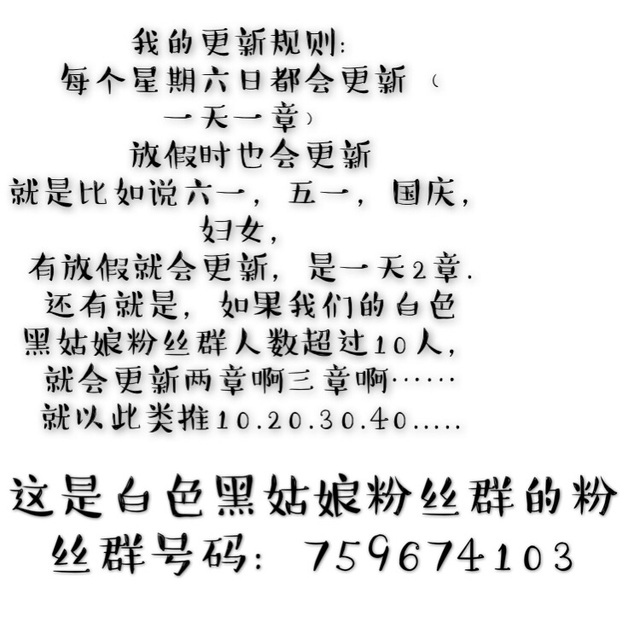 我的更新规则:
每个星期六日都会更新（
一天一章）
放假时也会更新
就是比如说六一，五一，国庆，
妇女，
有放假就会更新，是一天2章.
还有就是，如果我们的白色
黑姑娘粉丝群人数超过10人，
就会更新两章啊三章啊……
就以此类推10.20.30.40.....
这是白色黑姑娘粉丝群的粉
丝群号码: 759674103